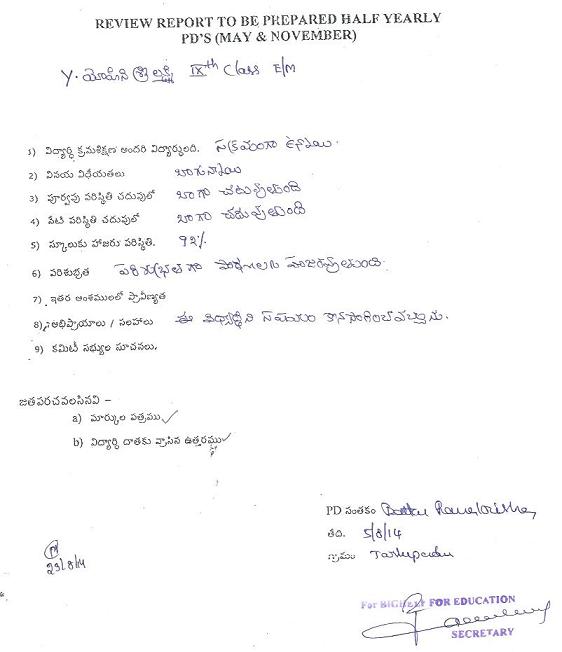 REVIEW REPORT TO BE PREPARED HALF YEARLY
PD'S (MAY & NOVEMBER)
Y. యోహిని శ్రీ లక్ష్మి IXth Class E/M
1) విద్యార్థి క్రమశిక్షణ అందరి విద్యార్థులది. సక్రమంగా ఉన్నాయి.
2) వినయ విధేయతలు బాగున్నాయి
3) పూర్వపు పరిస్థితి చదువులో బాగా చదువుతుంది
4) నేటి పరిస్థితి చదువులో బాగా చదువుతుంది
5) స్కూలుకు హాజరు పరిస్థితి. 92%
6) పరిశుభ్రత పరిశుభ్రతగా హాజరవుతుంది.
7) ఇతర అంశములలో ప్రావీణ్యత
8) అభిప్రాయాలు / సలహాలు ఈ విద్యార్థిని సహాయం కొనసాగించవచ్చును.
9) కమిటీ సభ్యుల సూచనలు.
జతపరచవలసినవి –
a) మార్కుల పత్రము ✓
b) విద్యార్థి దాతకు వ్రాసిన ఉత్తరము ✓
PD సంతకం
తేది. 5/8/14
గ్రామం
23/8/14
For BIGHELP FOR EDUCATION
SECRETARY